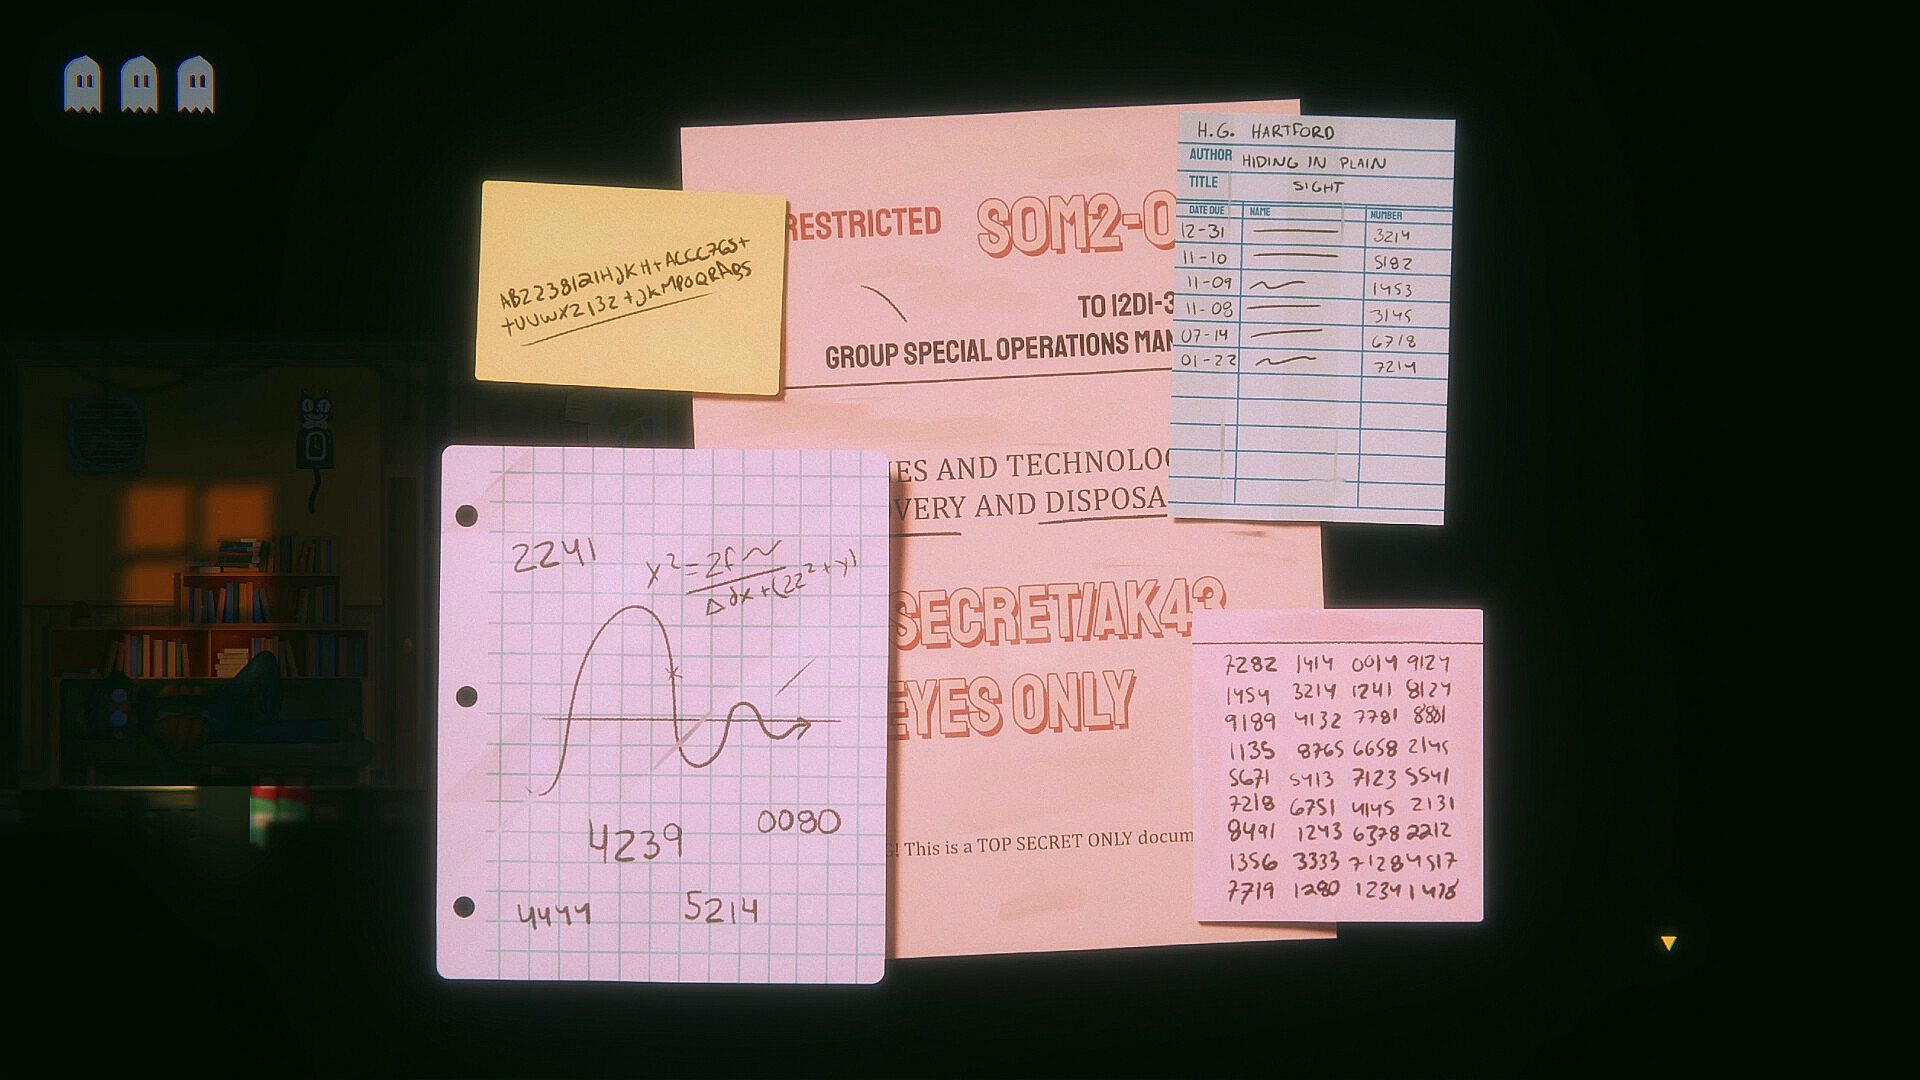 AB2238121HJKH+ACCC7GS+
+UUWXZ132+JKMPOQRABS
RESTRICTED SOM2-0
TO I2DI-3
GROUP SPECIAL OPERATIONS MAN
IES AND TECHNOLOG
VERY AND DISPOSA
SECRET/AK43
EYES ONLY
! This is a TOP SECRET ONLY docum
H.G. HARTFORD
AUTHOR HIDING IN PLAIN
TITLE SIGHT
DATE DUE NAME NUMBER
12-31 3214
11-10 5182
11-09 1453
11-08 3145
07-14 6718
01-22 7214
2241
4239
0080
4444
5214
7282 1414 0014 9124
1454 3214 1241 8124
9189 4132 7781 8881
1135 8765 6658 2145
5671 5413 7123 5541
7218 6751 4145 2131
8491 1243 6378 2212
1356 3333 7128 4517
7719 1280 1234 1478